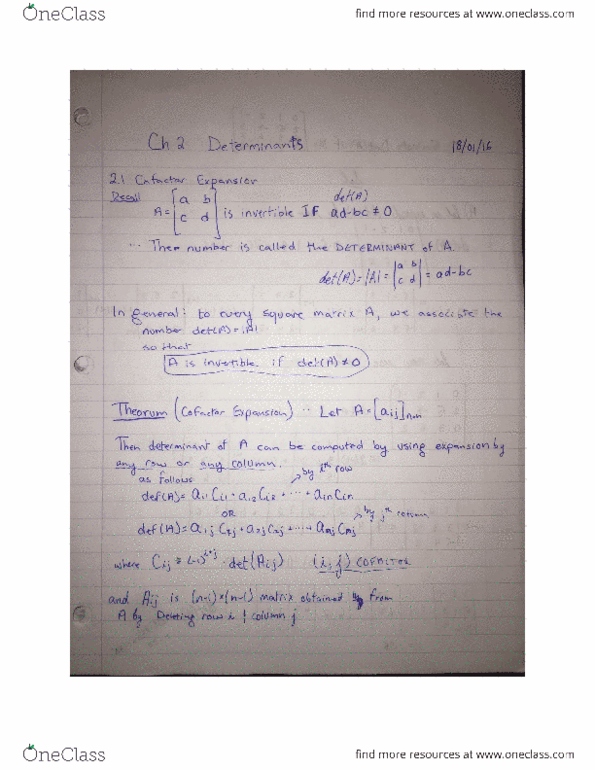 OneClass
find more resources at www.oneclass.com
Ch 2 Determinants
18/01/16
2.1 Cofactor Expansion
Recall
det(A)
A = [a b c d] is invertible IF ad-bc ≠ 0
Then number is called the DETERMINANT of A
det(A) = |A| = |a b c d| = ad-bc
In general: to every square matrix A, we associate the
number det(A) = |A|
so that
A is invertible if det(A) ≠ 0
Theorum (Cofactor Expansion) ·· Let A = [aij]nxn
Then determinant of A can be computed by using expansion by
any row or any column.
as follows
by ith row
def(A) = ai1 Ci1 + ai2 Ci2 + ··· + ain Cin
OR
by jth
def(A) = a1j C1j + a2j C2j + ··· + anj Cnj
where Cij = (-1)^i+j · det(Aij) (i,j) COFACTOR
and Aij is (n-1)×(n-1) matrix obtained from
A by Deleting row i & column j
OneClass
find more resources at www.oneclass.com